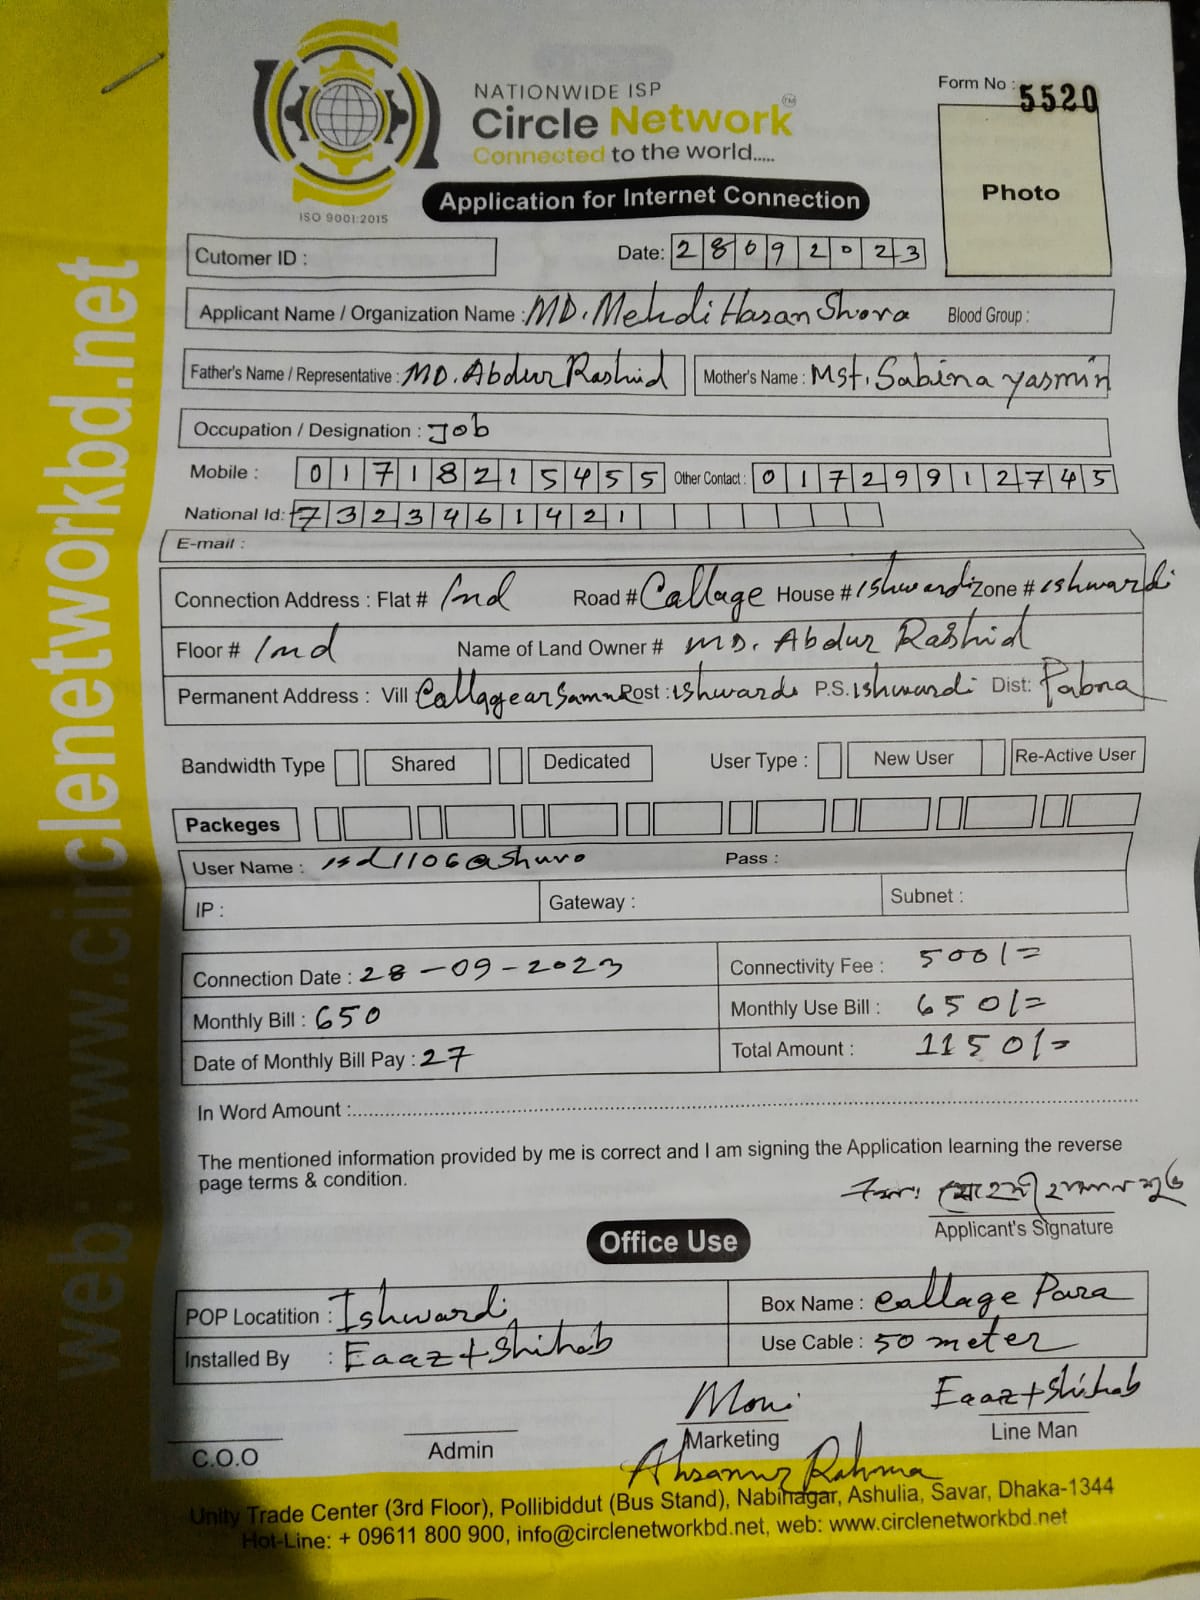 NATIONWIDE ISP
Circle Network TM
Connected to the world.....
ISO 9001:2015
Form No : 5520
Photo
Application for Internet Connection
Cutomer ID :
Date: 28092023
Applicant Name / Organization Name : MD. Mehdi Hasan Shova Blood Group :
Father's Name / Representative : MD. Abdur Rashid Mother's Name : Mst. Sabina yasmin
Occupation / Designation : Job
Mobile : 01718215455 Other Contact : 01729912745
National Id: 7323461421
E-mail :
Connection Address : Flat # Ind Road # Callage House # ishwardi Zone # ishwardi
Floor # Ind Name of Land Owner # MD. Abdur Rashid
Permanent Address : Vill Post : ishwardi P.S. ishwardi Dist: Pabna
Bandwidth Type Shared Dedicated User Type : New User Re-Active User
Packeges
User Name : isd1106@shuvo Pass :
IP : Gateway : Subnet :
Connection Date : 28-09-2023 Connectivity Fee : 500/=
Monthly Bill : 650 Monthly Use Bill : 650/=
Date of Monthly Bill Pay : 27 Total Amount : 1150/=
In Word Amount :
The mentioned information provided by me is correct and I am signing the Application learning the reverse
page terms & condition.
Applicant's Signature
Office Use
POP Locatition : Ishwardi Box Name : Callage Para
Installed By : Eaaz+Shihab Use Cable : 50 meter
Moni Eaaz+Shihab
C.O.O Admin Marketing Line Man
Ahsanur Rahman
Unity Trade Center (3rd Floor), Pollibiddut (Bus Stand), Nabinagar, Ashulia, Savar, Dhaka-1344
Hot-Line: + 09611 800 900, info@circlenetworkbd.net, web: www.circlenetworkbd.net
web: www.circlenetworkbd.net